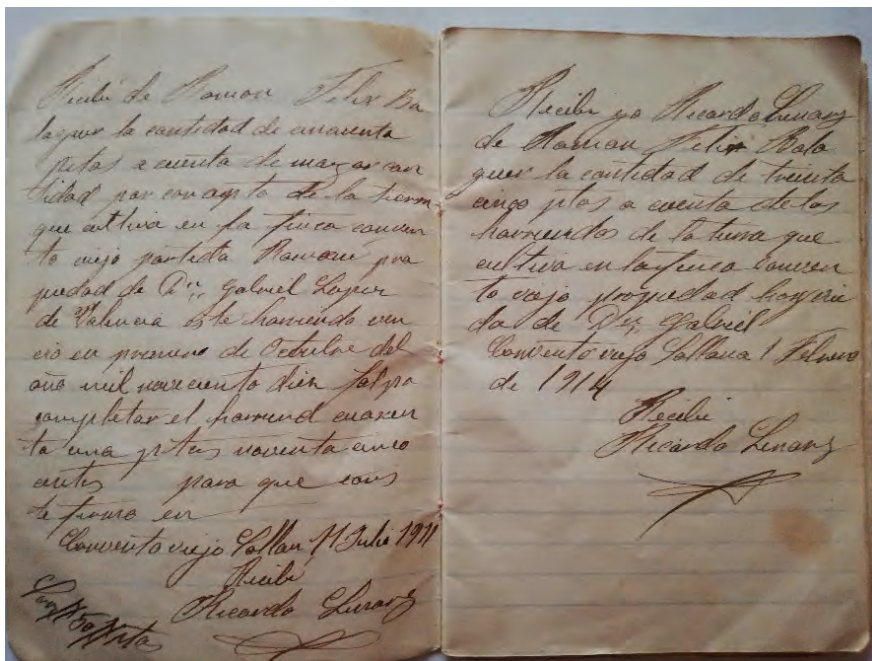 Recibí de Ramon Felix Ba
laguer la cantidad de cincuenta
ptas a cuenta de mayor can
tidad por concepto de la tierra
que cultiva en la finca conven
to viejo partida Romaní pro
piedad de Dn Gabriel Lopez
de Valencia este harriendo ven
cio en primero de Octubre del
año mil novecientos diez falta
completar el harriend cuaren
ta una ptas noventa cinco
para que cons
te firmo en
Convento viejo Sollana 11 Julio 1911
Recibí
Ricardo Linarez
50 Ptas
Recibi yo Ricardo Linarez
de Ramon Felix Bala
guer la cantidad de treinta
cinco ptas a cuenta de los
harriendos de la tierra que
cultiva en la finca Conven
to viejo propiedad
de Dn Gabriel
Convento viejo Sollana 1 Febrero
de 1914
Recibi
Ricardo Linarez